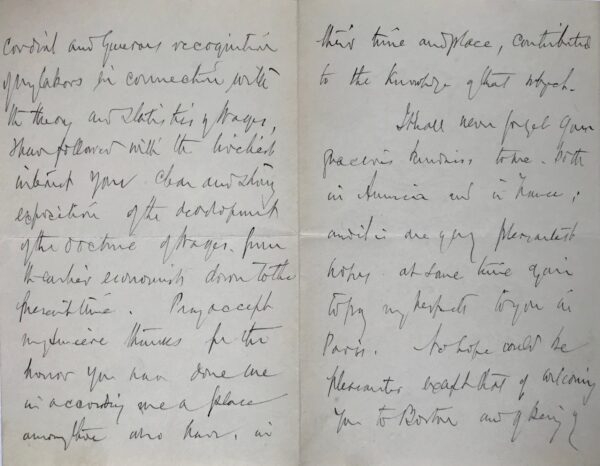 cordial and generous recognition
of my labors in connection with
the theory and statistics of wages,
I have followed with the liveliest
interest your clear and strong
exposition of the development
of the doctrine of wages from
the earlier economists down to the
present time. Pray accept
my sincere thanks for the
honor you have done me
in according me a place
among those who have, in
their time and place, contributed
to the knowledge of that subject.
I shall never forget your
gracious kindness to me both
in America and in France;
and it is one of my pleasantest
hopes at some time again
to pay my respects to you in
Paris. No hope could be
pleasanter except that of welcoming
you to Boston and of being